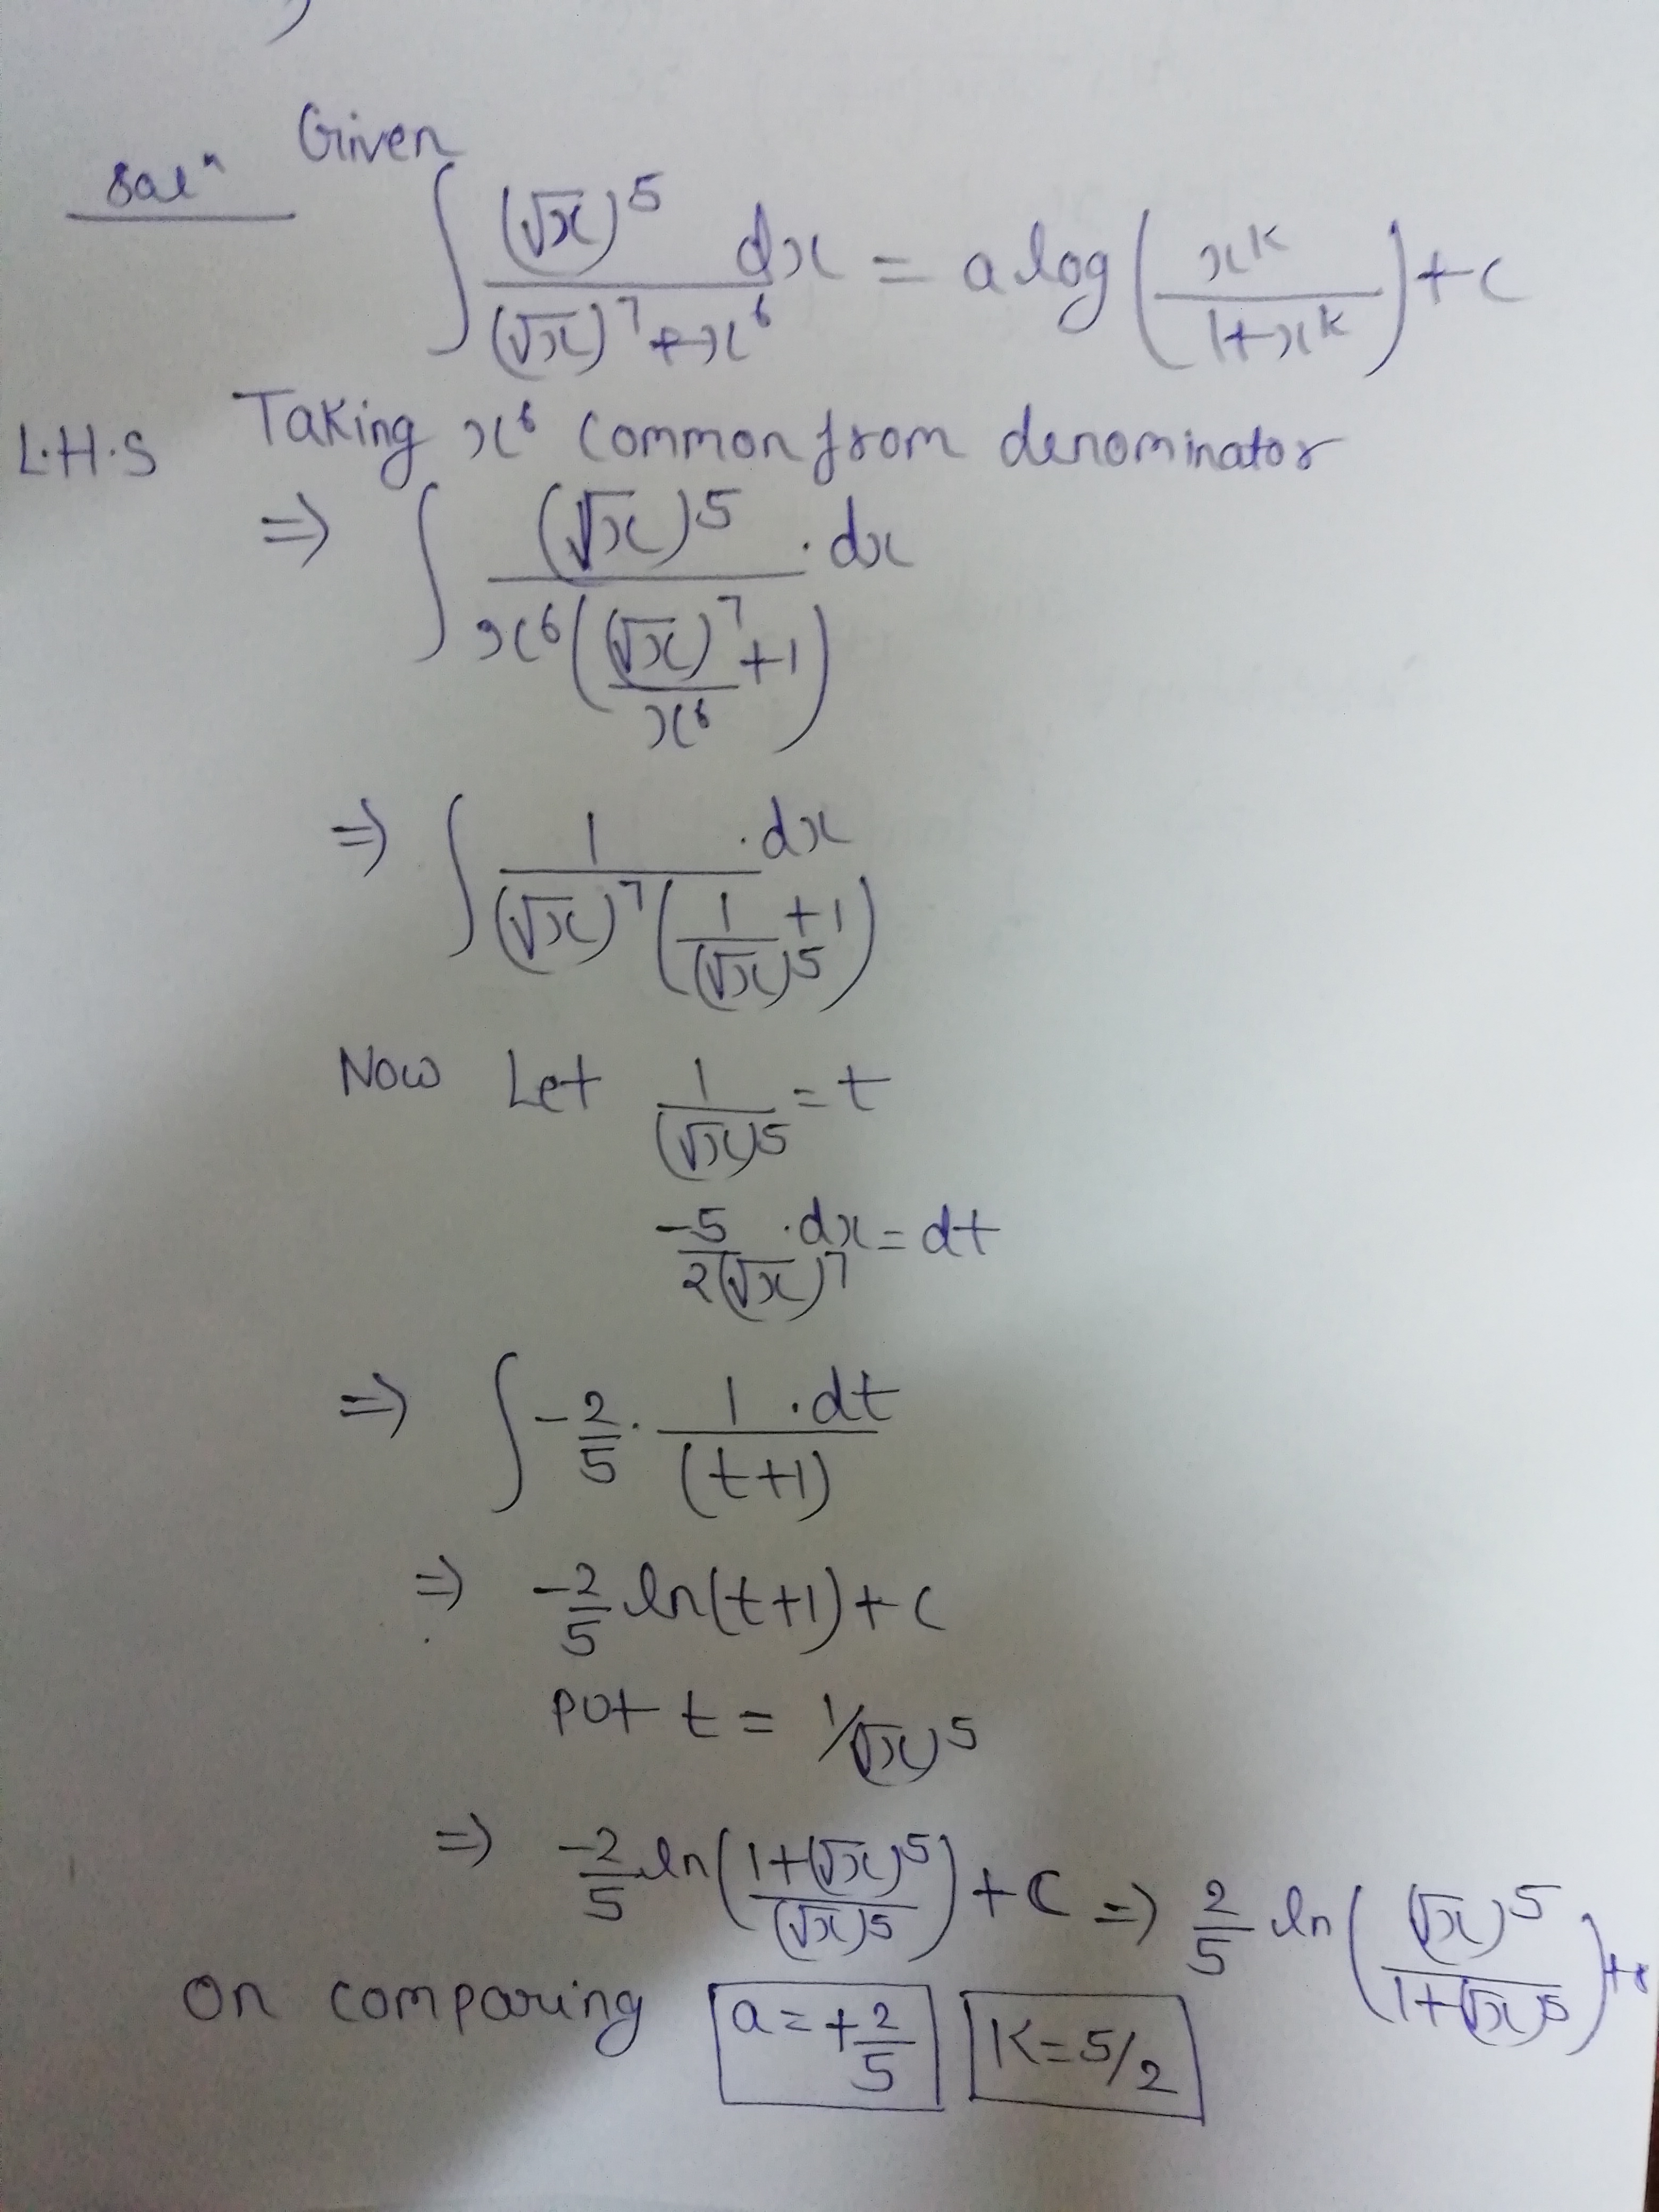 Solⁿ Given
∫ (√x)^5 / ((√x)^7 + x^6) dx = a log(x^k / (1+x^k)) + c
L.H.S Taking x^6 common from denominator
⇒ ∫ (√x)^5 / (x^6((√x)^7/x^6 + 1)) · dx
⇒ ∫ 1 / ((√x)^7(1/(√x)^5 + 1)) · dx
Now Let 1/(√x)^5 = t
-5/(2(√x)^7) · dx = dt
⇒ ∫ -2/5 · 1/(t+1) · dt
⇒ -2/5 ln(t+1) + c
put t = 1/(√x)^5
⇒ -2/5 ln((1+(√x)^5)/(√x)^5) + C ⇒ 2/5 ln((√x)^5/(1+(√x)^5)) + c
On comparing a = +2/5 K = 5/2